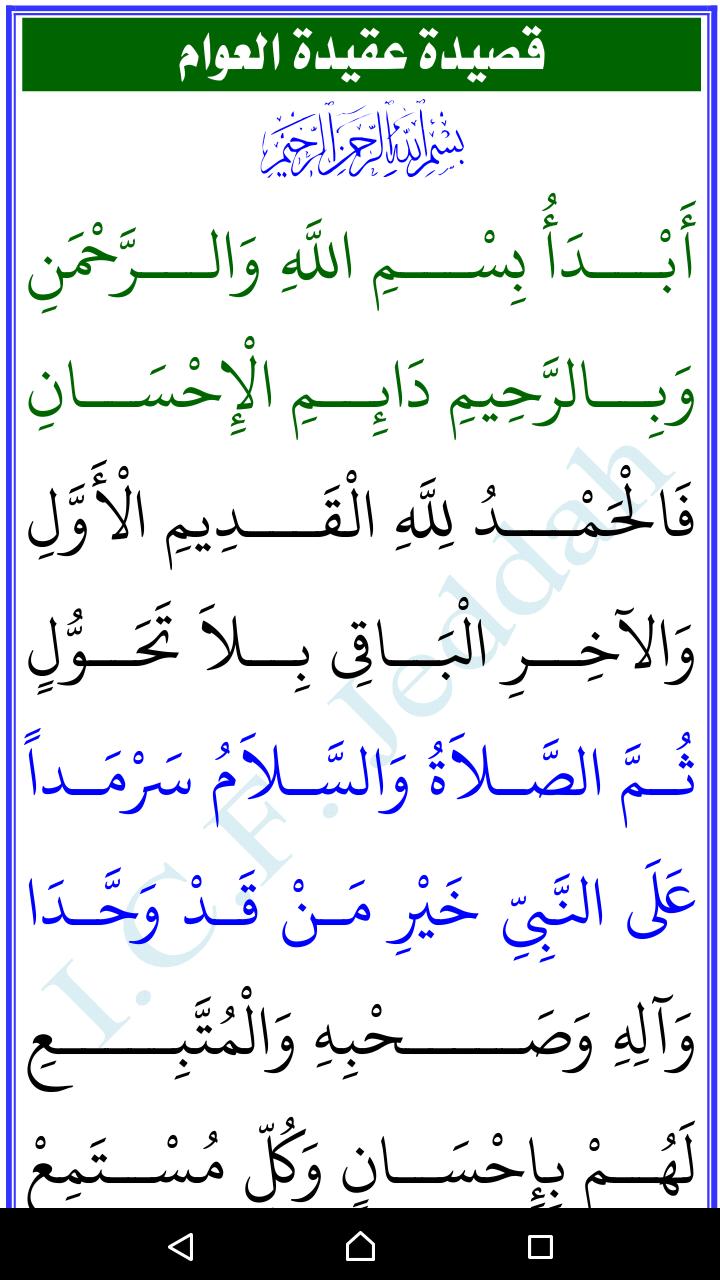 قصيدة عقيدة العوام
بِسْمِ اللَّهِ الرَّحْمَنِ الرَّحِيمِ
أَبْـدَأُ بِسْـمِ اللَّهِ وَالـرَّحْمَنِ
وَبِـالرَّحِيمِ دَائِـمِ الْإِحْسَـانِ
فَالْحَمْـدُ لِلَّهِ الْقَـدِيمِ الْأَوَّلِ
وَالآخِـرِ الْبَـاقِى بِـلاَ تَحَـوُّلٍ
ثُـمَّ الصَّـلاَةُ وَالسَّـلاَمُ سَرْمَـداً
عَلَى النَّبِيِّ خَيْرِ مَـنْ قَـدْ وَحَّـدَا
وَآلِهِ وَصَـحْبِهِ وَالْمُتَّبِـعِ
لَهُـمْ بِإِحْسَـانٍ وَكُلِّ مُسْـتَمِعْ
I.C.F. Jeddah